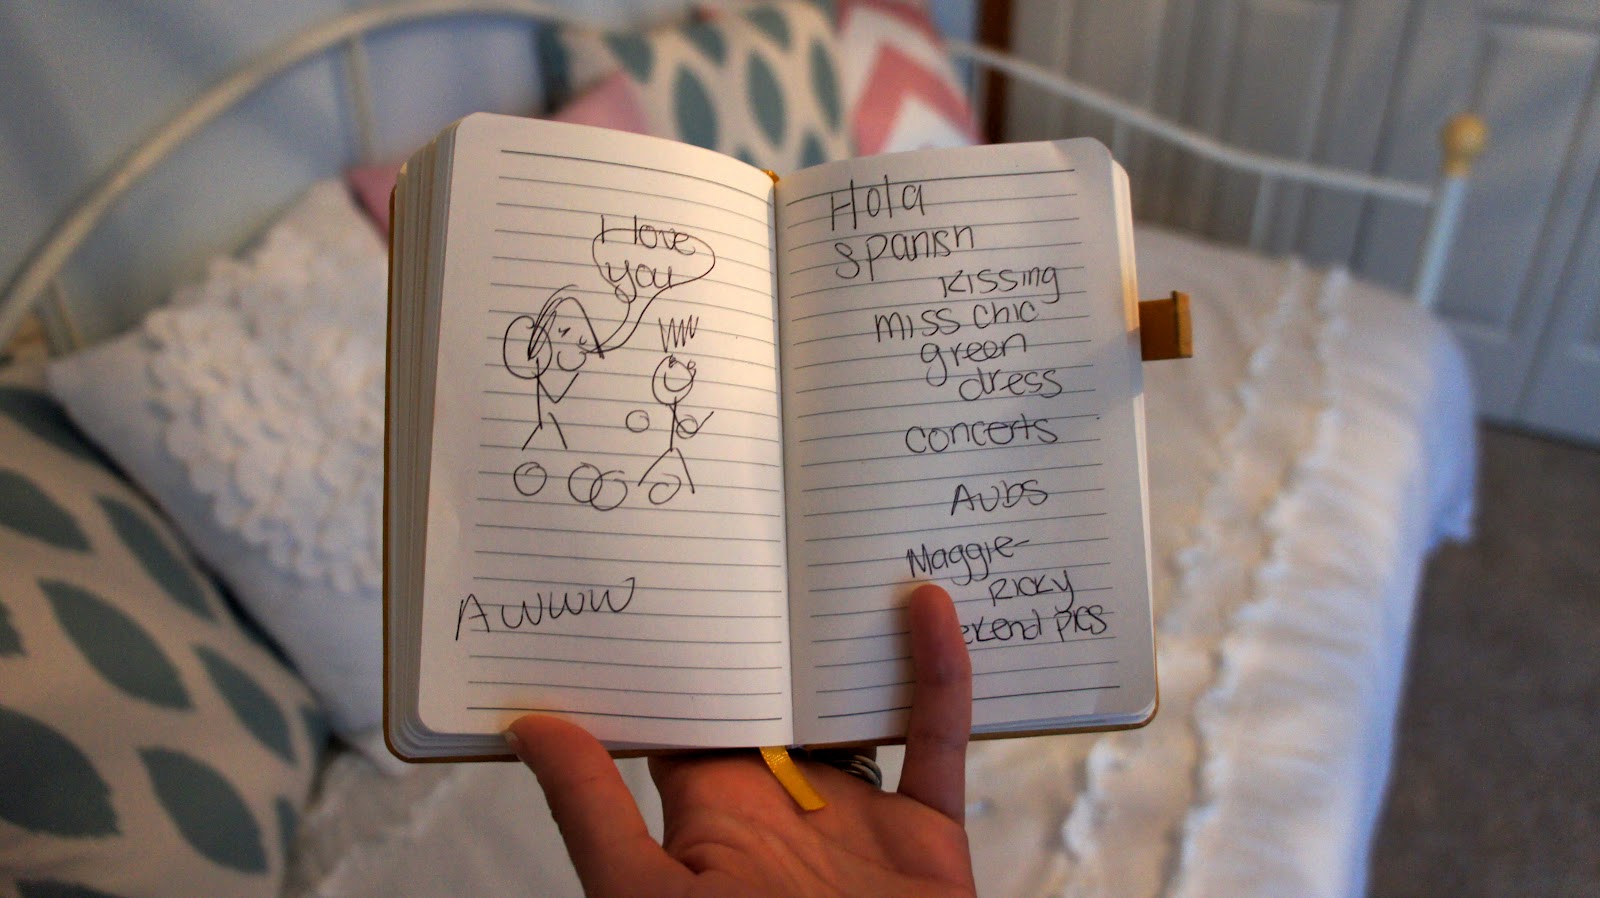 I love
you
Awww
Hola
Spanish
Kissing
miss chic
green
dress
concerts
Aubs
Maggie-
Ricky
ekend pics